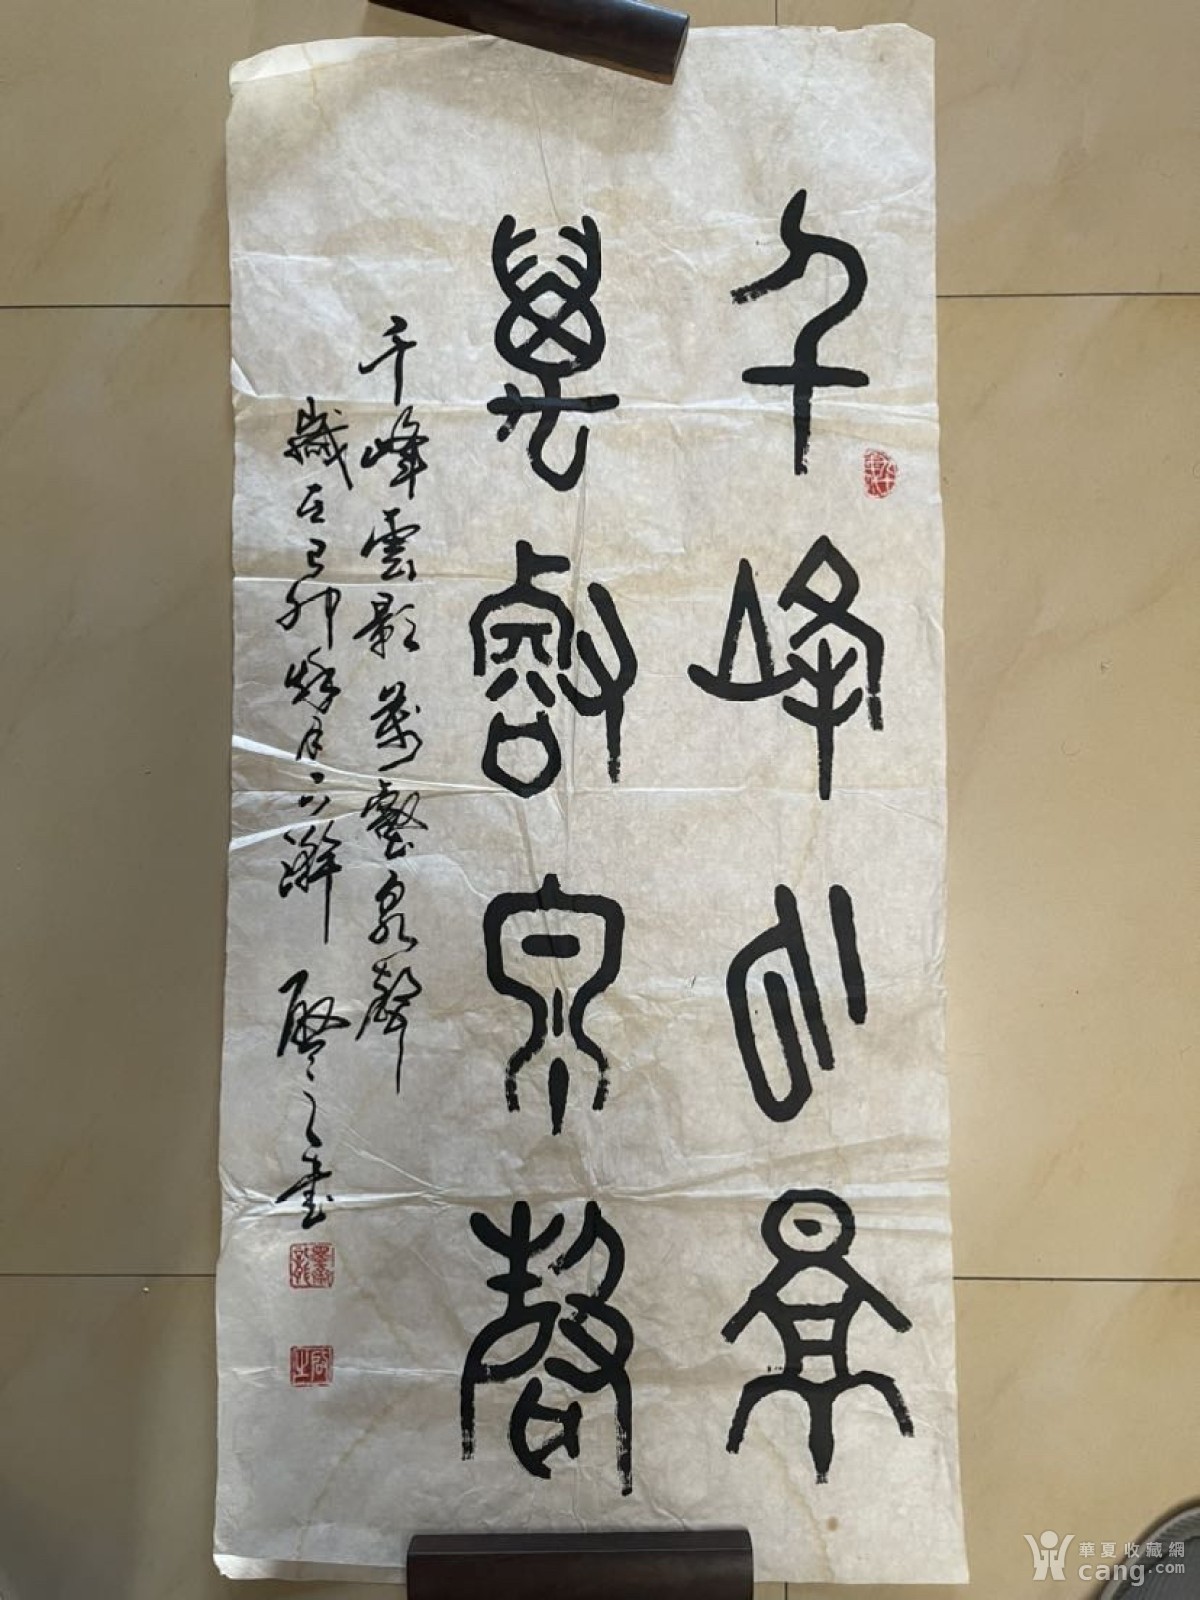 千峰云景
萬壑泉声
千峰雲影萬壑泉聲
歲在己卯秋月 之書
華夏收藏網
cang.com